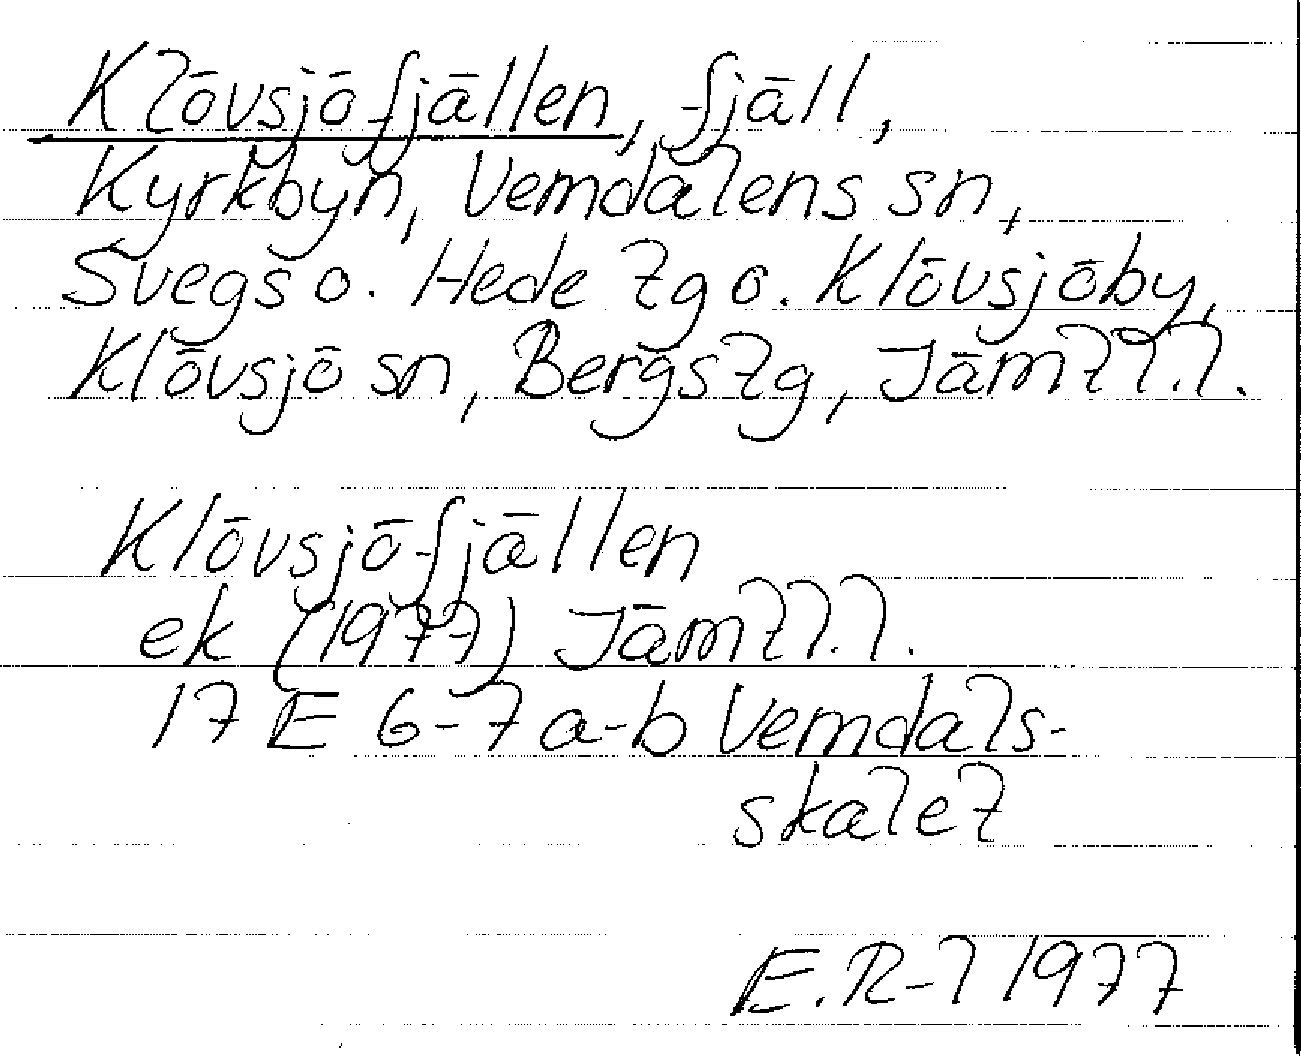 Klövsjöfjällen, fjäll,
Kyrkbyn, Vemdalens sn,
Svegs o. Hede tg o. Klövsjöby,
Klövsjö sn, Bergs tg, Jämtl.l.
Klövsjöfjällen
ek (1977) Jämtl.l.
17 E 6-7 a-b Vemdals-
skalet
E.R-l 1977